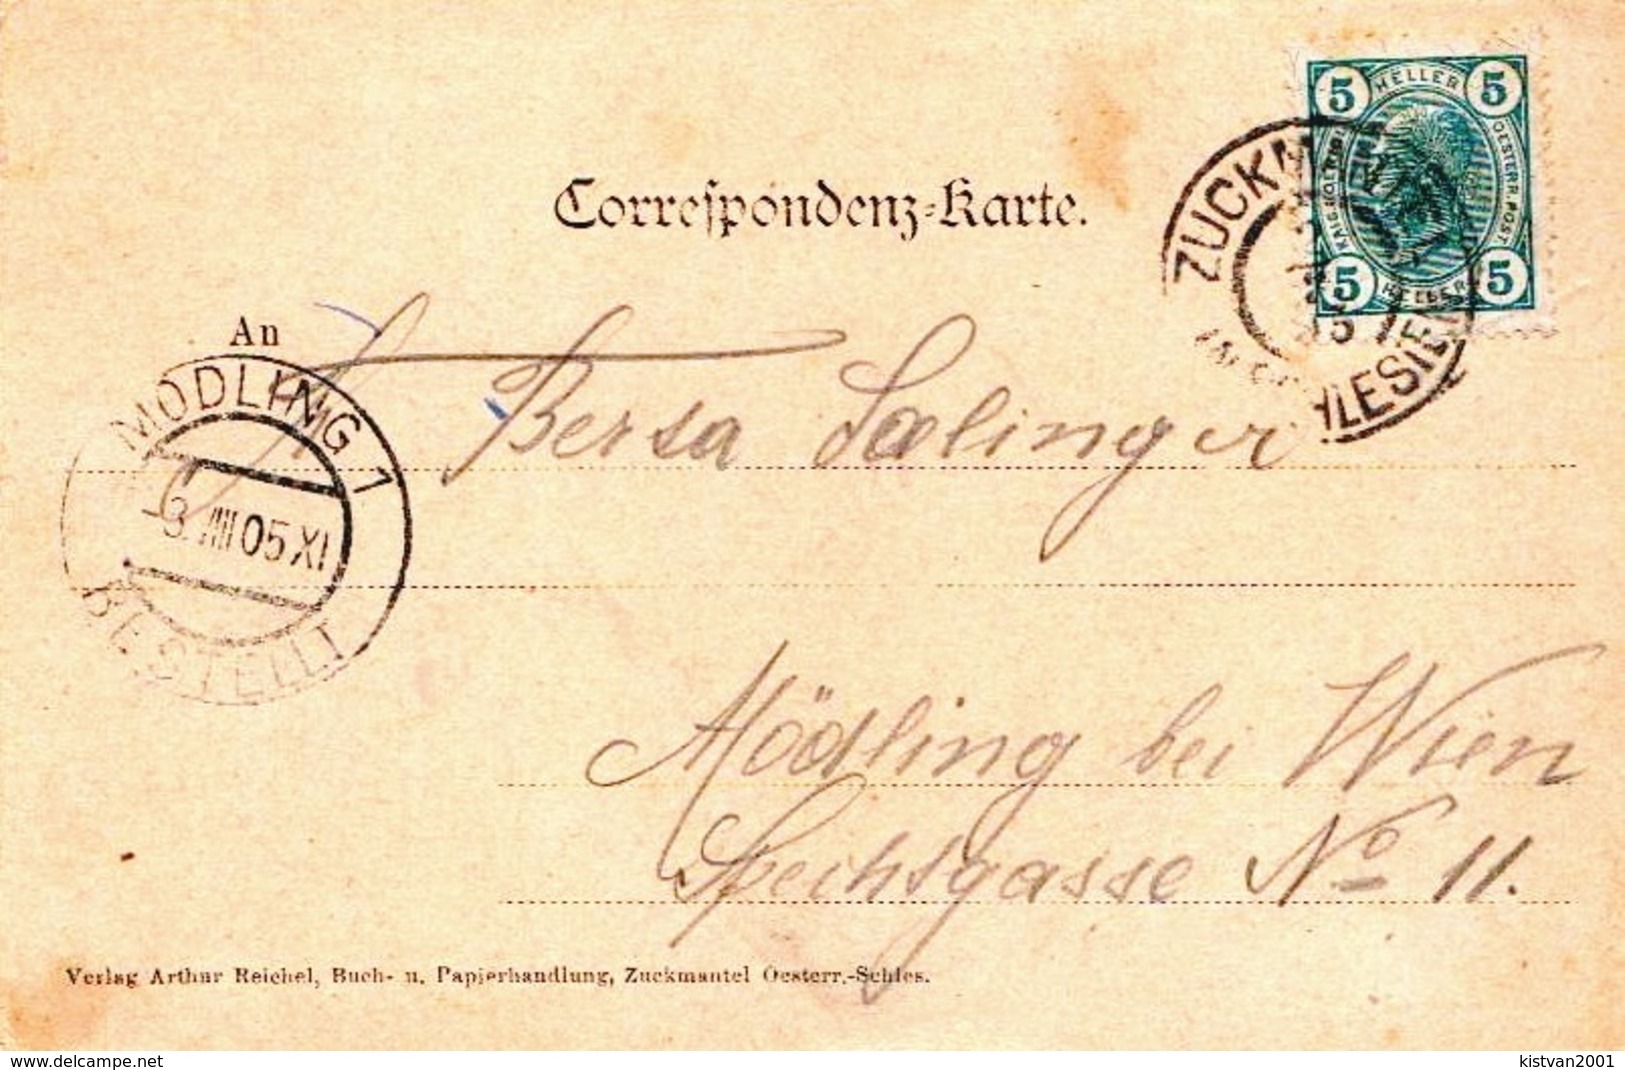 Correspondenz-Karte.
5 HELLER 5
OESTERR. POST
5 HELLER 5
ZUCKM
SCHLESIEN
An
MÖDLING 1
-8. VIII 05 XI
BESTELLT
Bersa Salinger
Mödling bei Wien
Spechtgasse No 11.
Verlag Arthur Reichel, Buch- u. Papierhandlung, Zuckmantel Oesterr.-Schles.
www.delcampe.net
kistvan2001